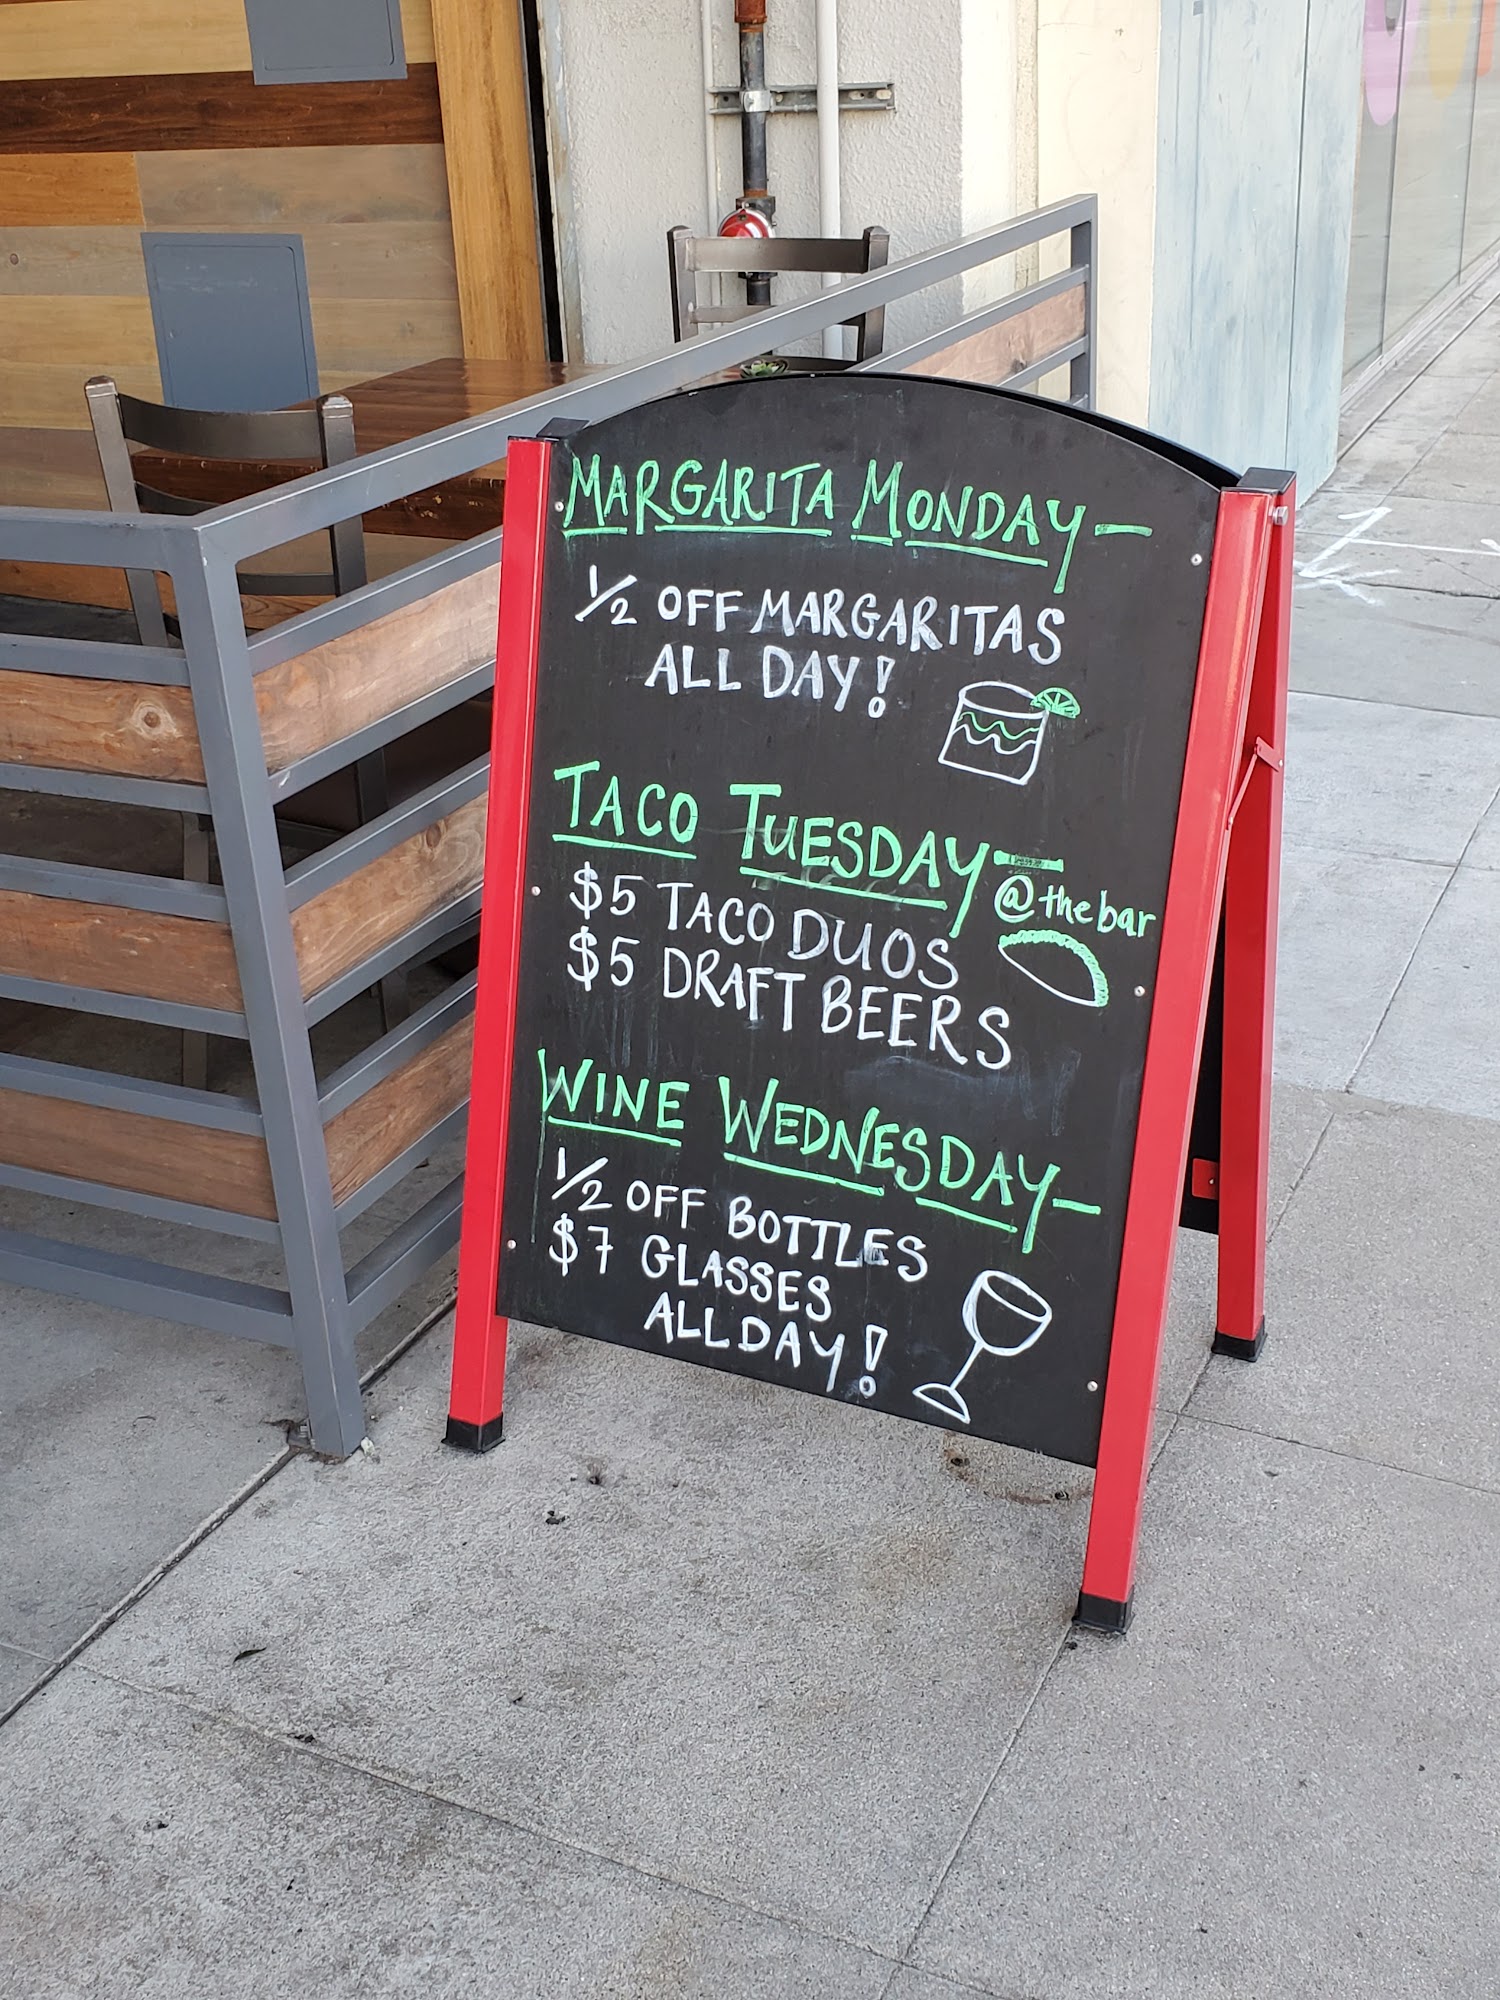 MARGARITA MONDAY—
1/2 OFF MARGARITAS
ALL DAY!
TACO TUESDAY—
@thebar
$5 TACO DUOS
$5 DRAFT BEERS
WINE WEDNESDAY—
1/2 OFF BOTTLES
$7 GLASSES
ALL DAY!